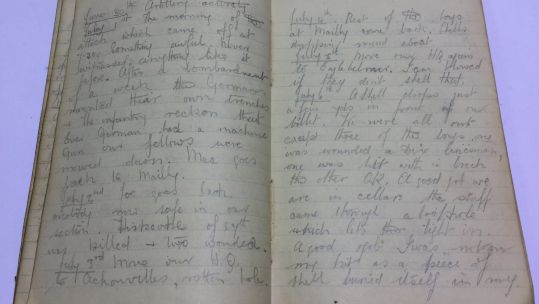 June 30th Artillery activity
July 1st the morning of the
attack which came off at
7-30. Something awful. Never
witnessed anything like it
before. After a bombardment
of a week the Germans
manned their own trenches
& the infantry reckon that
every German had a machine
gun our fellows were
mowed down. Mac goes
back to Mailly.
July 2nd Joe goes back
nobody now safe in our
section Fishscove of 29th
was killed & two wounded.
July 3rd Move our H.Q.
to Achonvilles, rotten hole.
July 4th Rest of the boys
at Mailly come back. Shells
dropping round about.
July 5th Move our HQ again
to Englebelmer. I am blowed
if they don't shell that.
July 6th A shell drops just
a few yds in front of our
billet. We were all out
except three of the boys one
was wounded a Div. lineman,
one was hit with a brick
the other OK. A good job we
are in cellars the stuff
came through a loophole
which lets the light in.
A good job I was not in
my bed as a piece of
shell buried itself in my